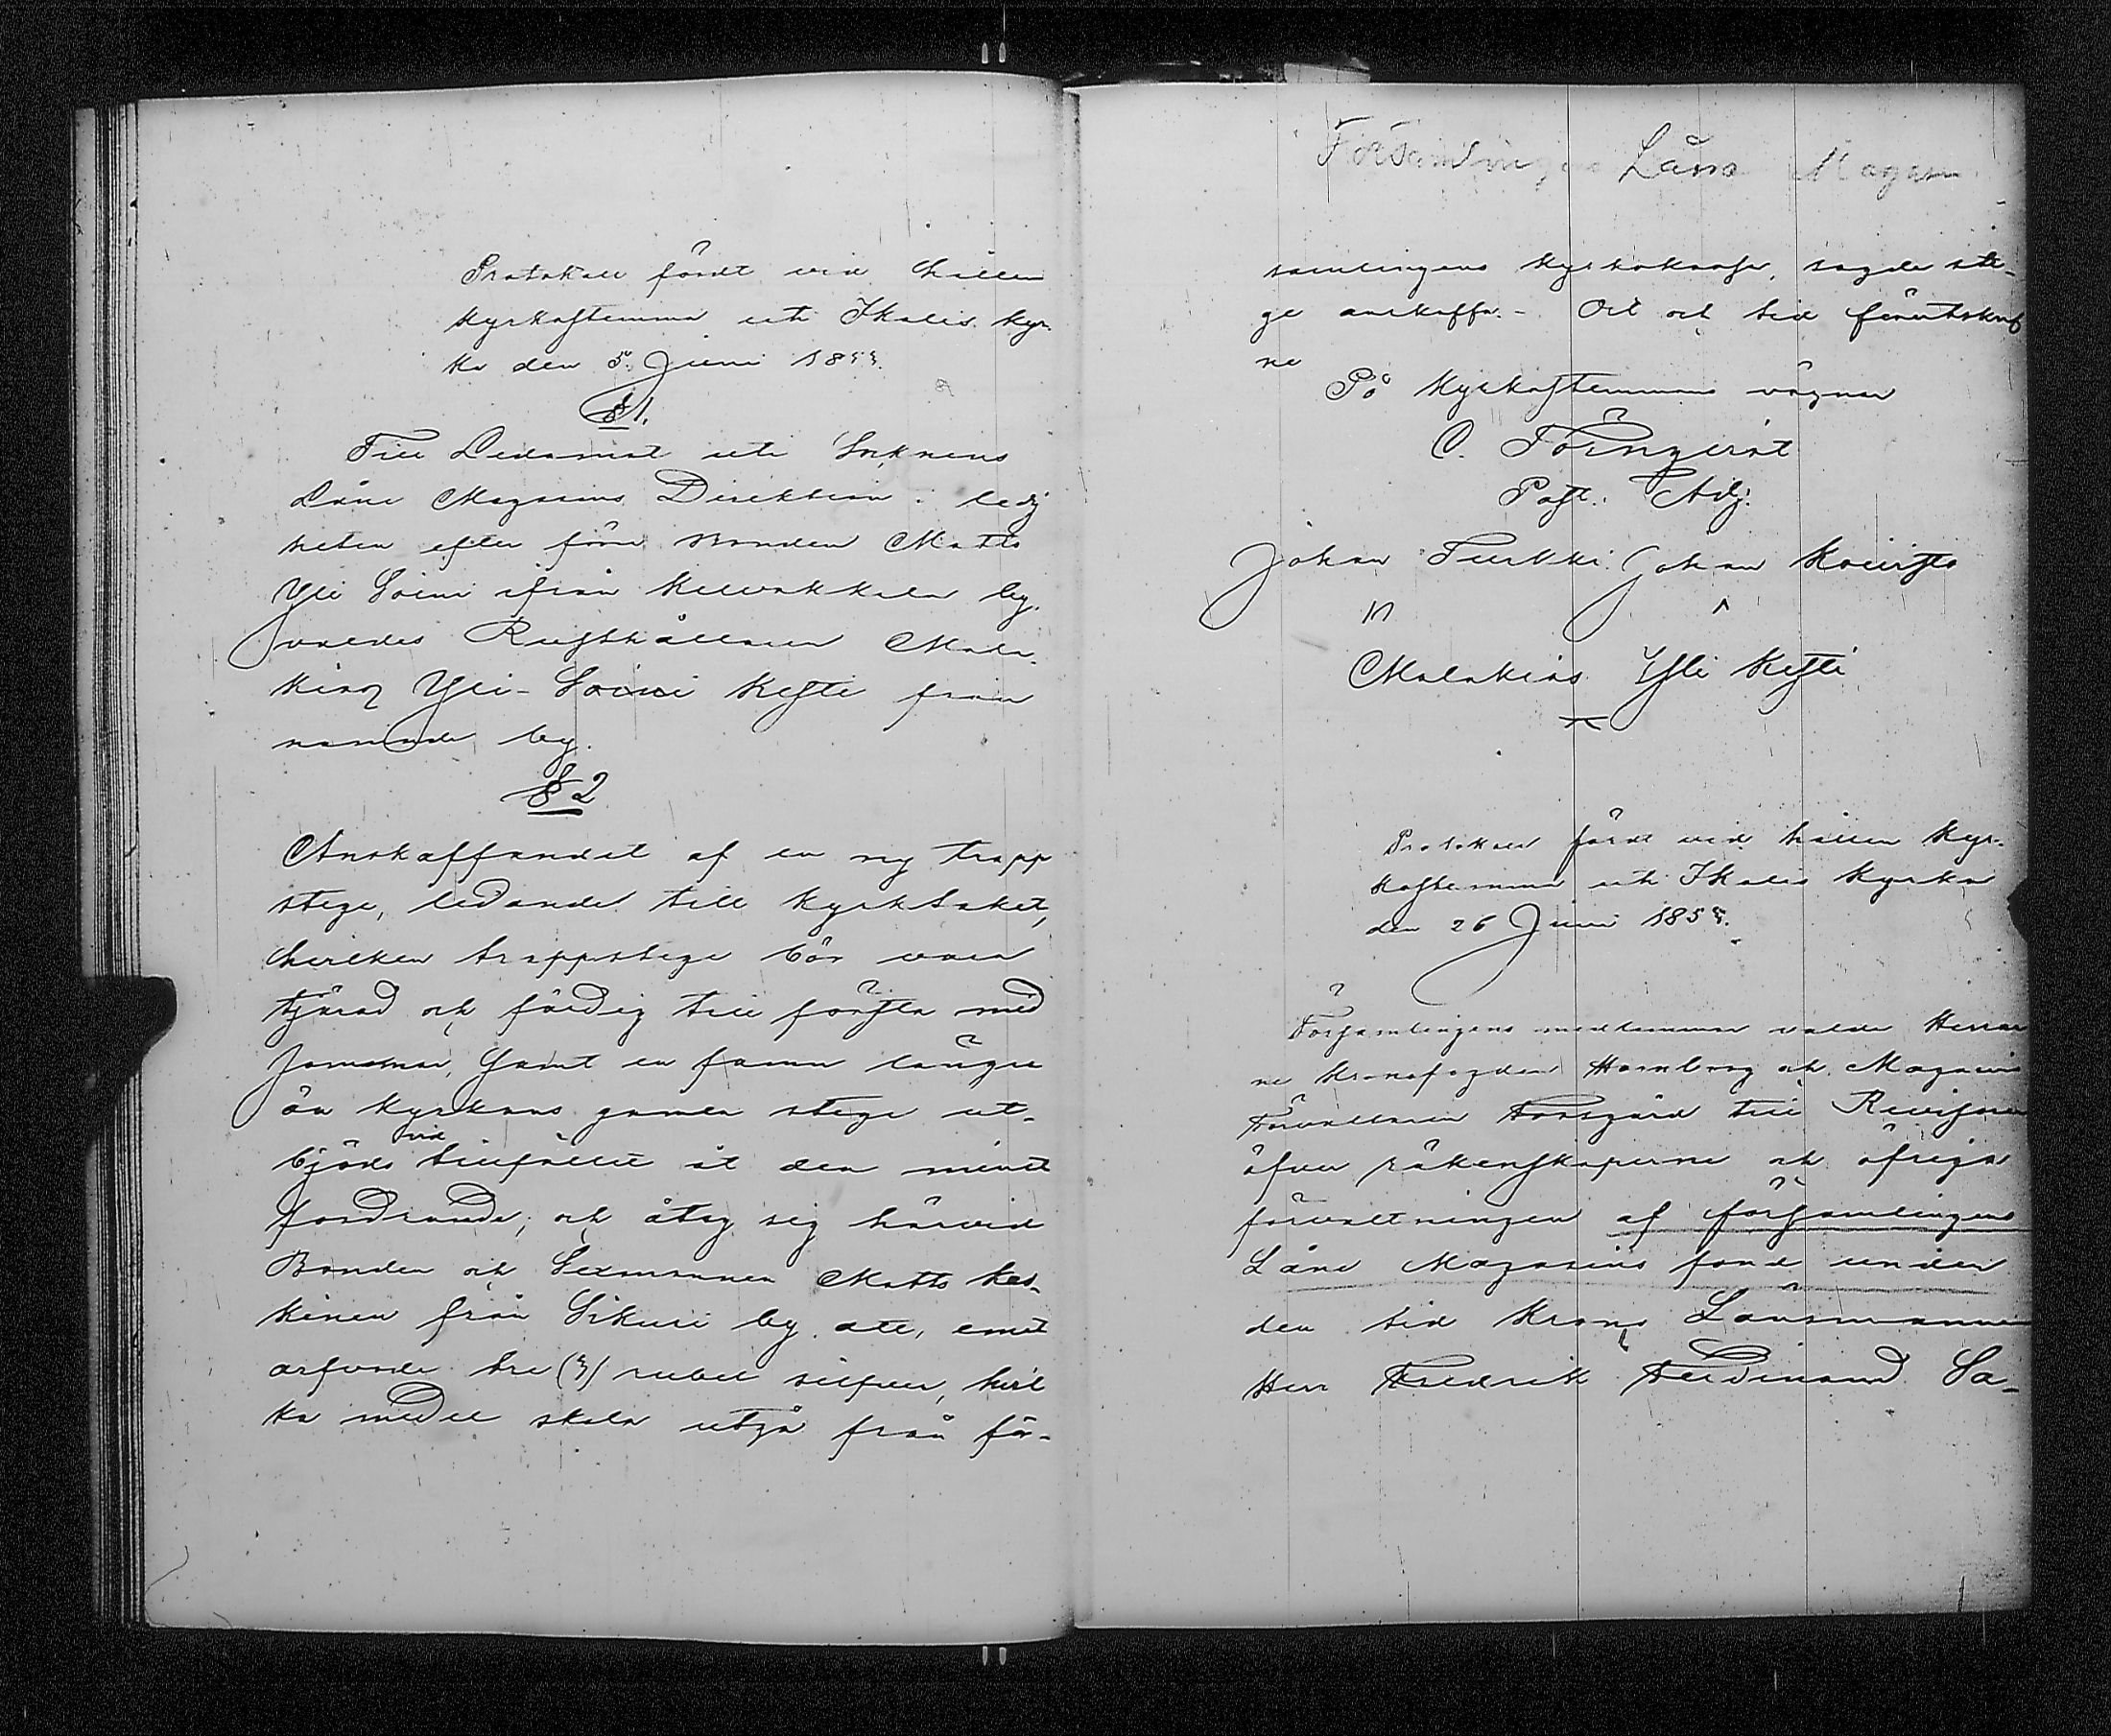 Protokoll fördt vid hållen
Kyrkostemma uti Ikalis Kyr-
ka den 5 Juni 1855.
§ 1.
Till Ledamot uti Socknens
Låne Magasins Direktion i ledig
heten efter förre bonden Matts
Yli Soini ifrån Kilvakkala by,
valdes Rusthållaren Mala-
kias Yli-Soini Kesti från
namnde by.
§ 2
Anskaffandet af en ny trapp
stege, ledande till Kyrktaket,
hvilken trappstege bör vara
tjärad och färdig till första mid
sommar, samt en famn längre
än Kyrkans gamla stege ut-
bjöds vid tillfället åt den minst
fordrande; och åtog sig härvid
Bonden och Sexmannen Matts Kes-
kinen från Sikuri by att, emot
arfvode tre (3) rubel silfver, hvil
ka medel skola utgå från för-
Församlingens Låne Magasin
samlingens Kyrkokassa, sagde ste-
ge anskaffa. - Ort och tid förutskref
ne
På Kyrkostemmans vägnar
C. Törnqvist
Past. Adj.
Johan Turkki Johan Koivisto
Malakias Yli Kesti
Protokoll fördt vid hållen Kyr-
kostemma uti Ikalis Kyrka
den 26 Juni 1855.
Församlingens medlemmar valde Herrar
ne Kronofogden Hornborg och Magasins
Förvaltaren Forsgård till Revisorer
öfver räkenskaperne och öfriga
förvaltningen af församlingens
Låne Magasins fond under
den tid Krono Länsmannen
Herr Fredrik Ferdinand Sa-